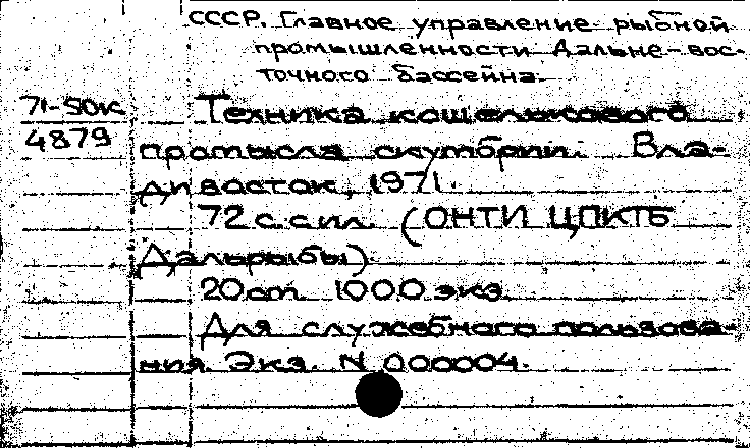 СССР. Главное управление рыбной
промышленности Дальне-вос-
точного бассейна.
71-50к
4879
Техника кошелькового
промысла скумбрии. Вла-
дивосток, 1971.
72 с. с ил. (ОНТИ ЦПКТБ
Дальрыбы)
20 см. 1000 экз.
Для служебного пользова-
ния. Экз. N 000004.